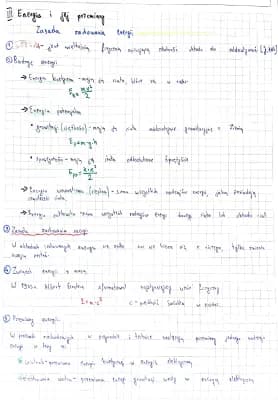 III Energia i jej przemiany
Zasada zachowania energii
① jest wielkością fizyczną opisującą zdolność układu do oddziaływań [J, kWh]
② Rodzaje energii
→ Energia kinetyczna - mają ją ciała, które są w ruchu
Ek = m·v²/2
→ Energia potencjalna
• grawitacji (ciężkości) - mają ją ciała oddziałujące grawitacyjnie z Ziemią
Ep = m·g·h
• sprężystości - mają ją ciała odkształcone sprężyście
Ep = k·x²/2
→ Energia wewnętrzna - suma wszystkich rodzajów energii, jaką posiadają
cząsteczki ciała
→ Energia całkowita - suma wszystkich rodzajów energii danego ciała lub układu ciał
③ Zasada zachowania energii
W układach izolowanych energia nie bierze się z niczego, tylko zmienia
swoją postać
④ Związek energii z masą
W 1905 r. Albert Einstein sformułował następujący wzór fizyczny
E = m·c² c - prędkość światła w próżni
⑤ Przemiany energii
W procesach zachodzących w przyrodzie i technice następują przemiany jednego rodzaju
energii w inny np.
przemiana energii kinetycznej w energię elektryczną
elektrownia wodna - przemiana energii grawitacji wody w energię elektryczną